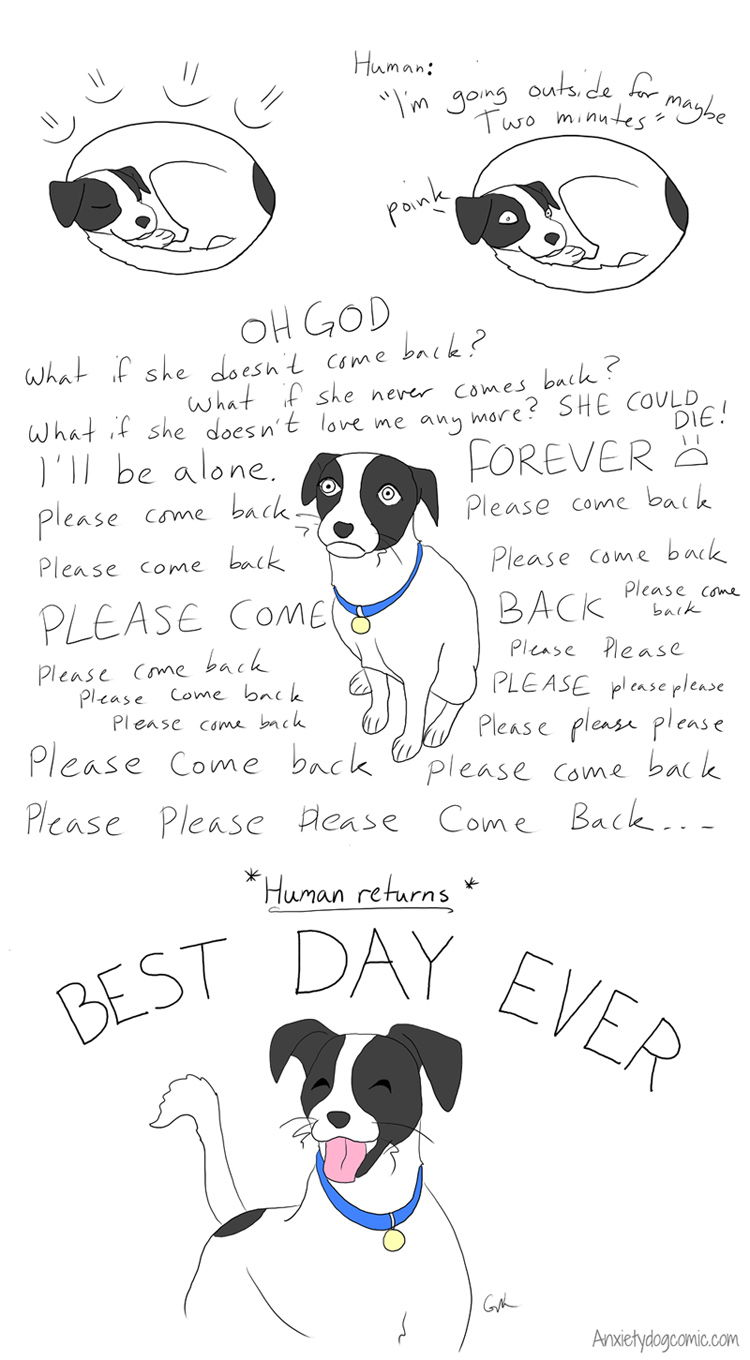 Human:
"I'm going outside for maybe
Two minutes"
poink
OH GOD
What if she doesn't come back?
What if she never comes back?
What if she doesn't love me anymore? SHE COULD
DIE!
I'll be alone. FOREVER
Please come back Please come back
Please come back Please come back
PLEASE COME BACK Please come
back
Please Please
Please come back PLEASE please please
Please come back
Please come back Please please please
Please Come back Please come back
Please Please Please Come Back...
*Human returns*
BEST DAY EVER
GMK
Anxietydogcomic.com